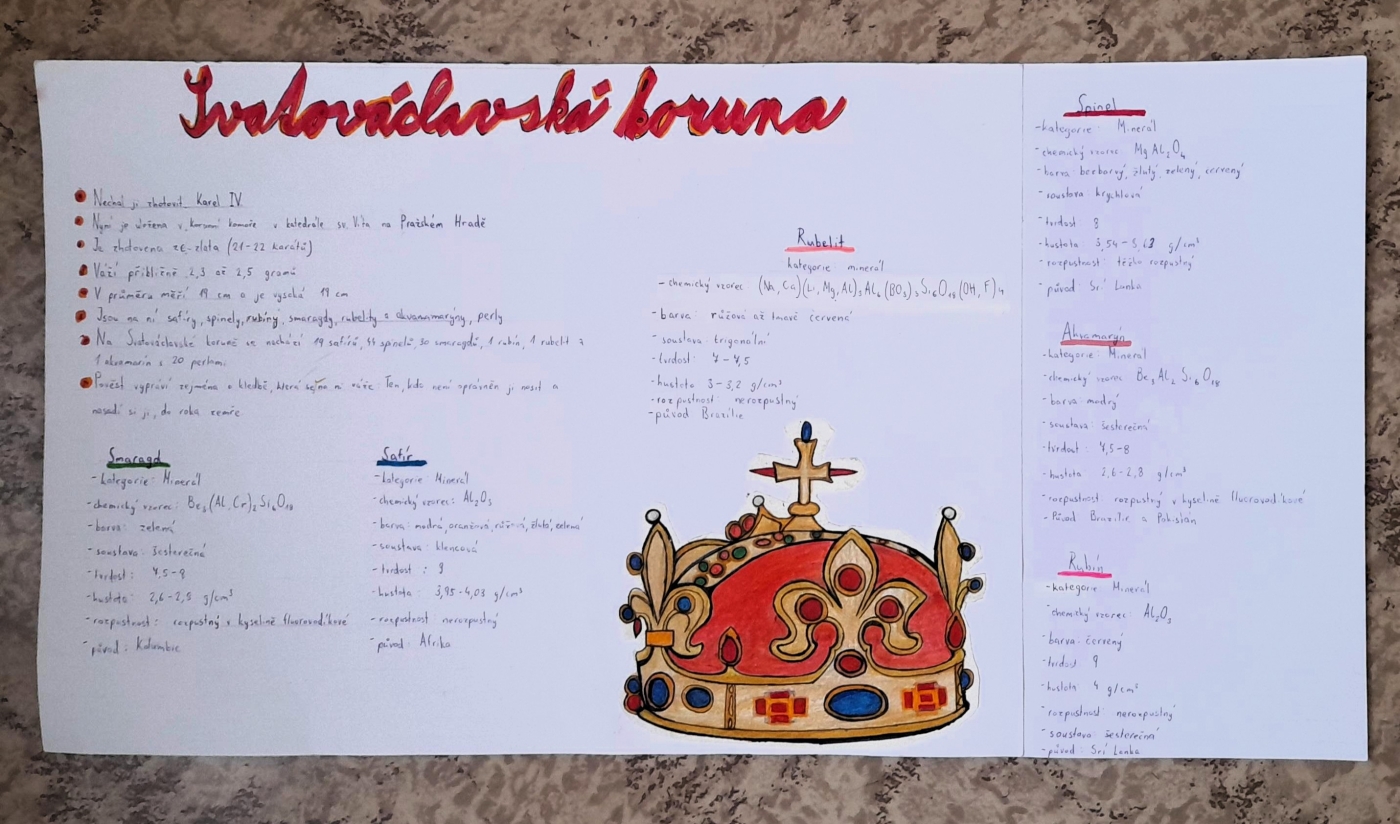 Svatováclavská koruna
Nechal ji zhotovit Karel IV
Nyní je uložena v korunní komoře v katedrále sv. Víta na Pražském Hradě
Je zhotovena ze zlata (21-22 karátů)
Váží přibližně 2,3 až 2,5 gramů
V průměru měří 19 cm a je vysoká 19 cm
Jsou na ní safíry, spinely, rubíny, smaragdy, rubelity a akvamarýny, perly
Na Svatováclavské koruně se nachází 19 safírů, 44 spinelů, 30 smaragdů, 1 rubín, 1 rubelit
1 akvamarín s 20 perlami.
Pověst vypráví zejména o kledbě, která se na ni váže. Ten, kdo není oprávněn ji nosit a
nasadí si ji, do roka zemře.
Smaragd
-kategorie: Minerál
-chemický vzorec: Be3(Al,Cr)2Si6O18
-barva: zelená
-soustava: šesterečná
-tvrdost: 7,5-8
-hustota: 2,6-2,8 g/cm³
-rozpustnost: rozpustný v kyselině fluorovodíkové
-původ: Kolumbie
Safír
-kategorie: Minerál
-chemický vzorec: Al2O3
-barva: modrá, oranžová, růžová, žlutá, zelená
-soustava: klencová
-tvrdost: 9
-hustota: 3,95-4,03 g/cm³
-rozpustnost: nerozpustný
-původ: Afrika
Rubelit
kategorie minerál
-chemický vzorec (Na, Ca)(Li, Mg, Al)3Al6(BO3)3Si6O18(OH, F)4
-barva: růžová až tmavě červená
-soustava: trigonální
-tvrdost: 7-7,5
-hustota 3-3,2 g/cm³
-rozpustnost: nerozpustný
-původ Brazílie
Spinel
-kategorie: Minerál
-chemický vzorec: MgAl2O4
-barva: bezbarvý, žlutý, zelený, červený
-soustava krychlová
-tvrdost 8
-hustota: 3,54-3,63 g/cm³
-rozpustnost: těžko rozpustný
-původ: Srí Lanka
Akvamarýn
-kategorie: Minerál
-chemický vzorec Be3Al2Si6O18
-barva: modrý
-soustava: šesterečná
-tvrdost: 7,5-8
-hustota: 2,6-2,8 g/cm³
-rozpustnost rozpustný v kyselině fluorovodíkové
-Původ Brazílie a Pakistán
Rubín
-kategorie Minerál
-chemický vzorec: Al2O3
-barva: červený
-tvrdost 9
-hustota 4 g/cm³
-rozpustnost: nerozpustný
-soustava: šesterečná
-původ: Srí Lanka